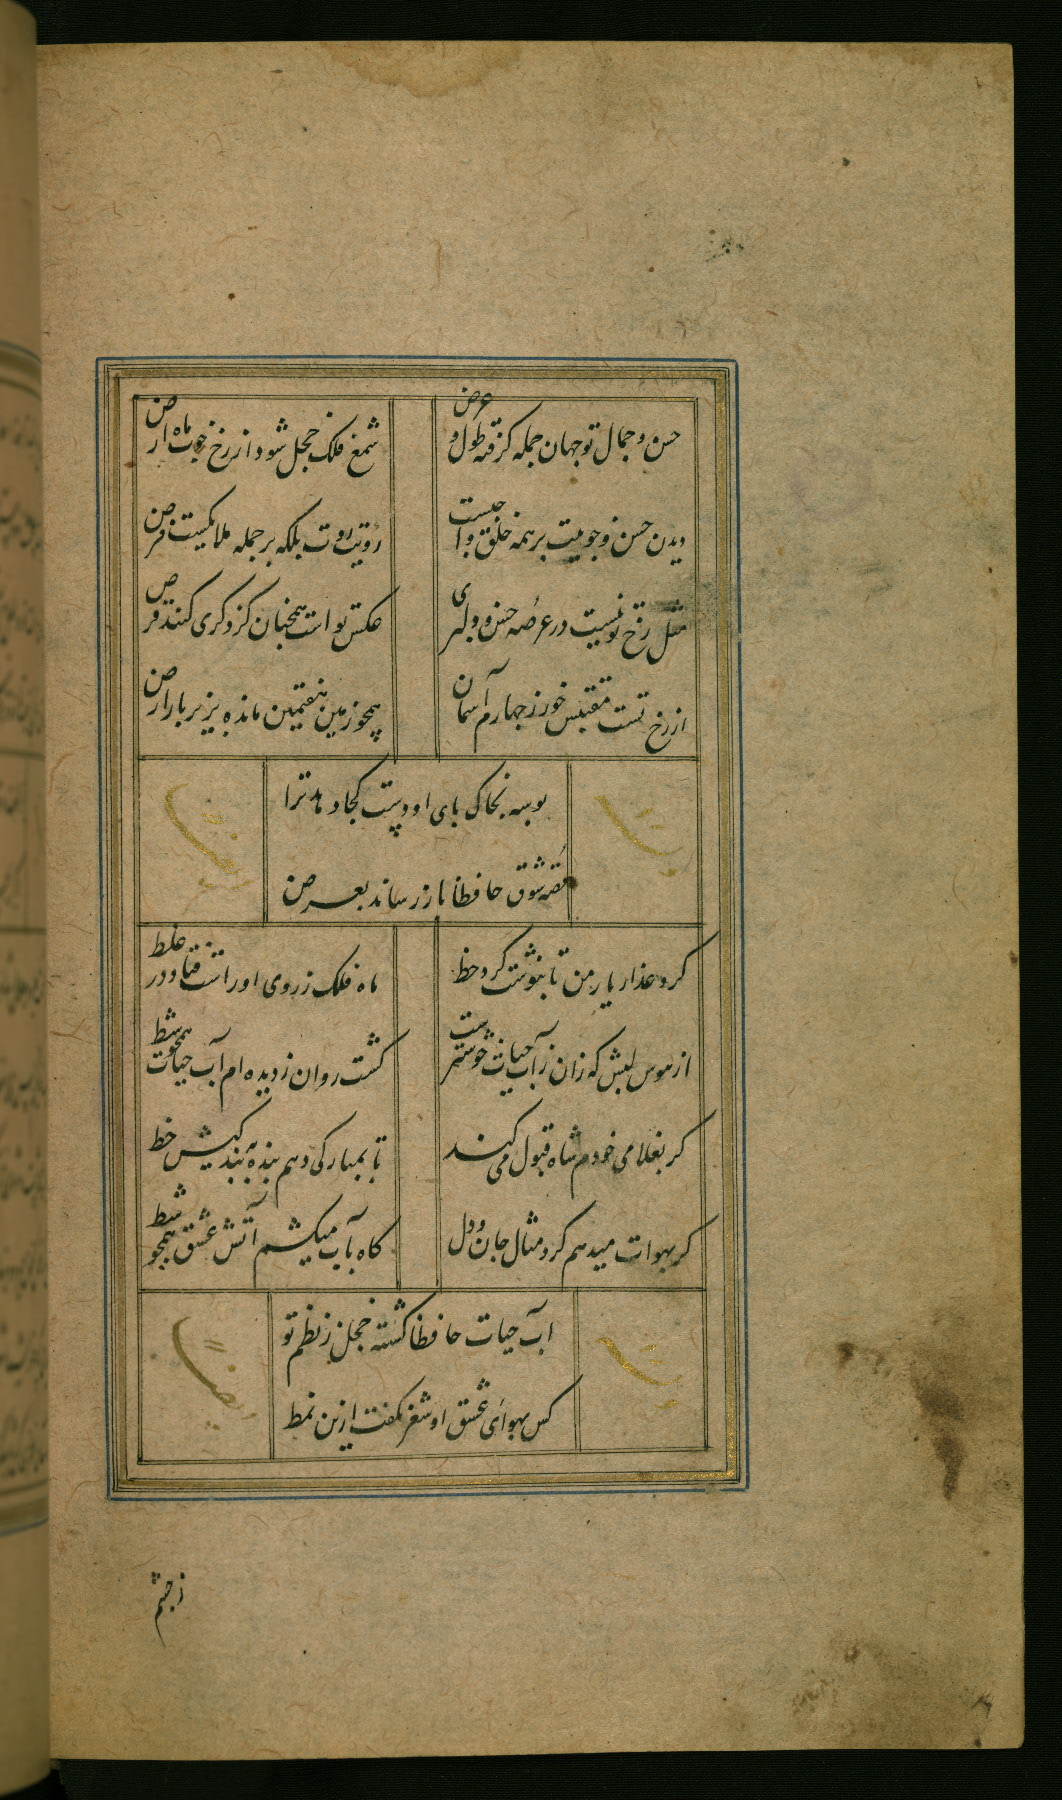 حسن و جمال تو جهان جمله گرفته طول و عرض
شمع فلک خجل شود از رخ خوب ماه ارض
دیدن حسن و خوبیت بر همه خلق واجبست
رویت روت بلکه بر جمله ملایکست فرض
مثل رخ تو نیست در عرصه حسن و دلبری
عکس تو است همچنان کز دگری کنند قرص
از رخ تست مقتبس خور ز چهارم آسمان
همچو زمین هفتمین مانده بزیر بار ارض
بوسه بخاک پای او دست کجا دهد ترا
قصه شوق حافظا باز رساند بعرض
گرد عذار یار من تا بنوشت گرد خط
ماه فلک ز روی او راست فتاد در غلط
از هوس لبش که زان ز آب حیات خوشترست
گشت روان ز دیده ام آب حیات همچو شط
گر بغلامی خودم شاه قبول می کند
تا بمبارکی دهم بنده به بندگیش خط
گر بهوات میدهم گرد مثال جان و دل
گاه بآب میکشم آتش عشق همچو شط
آب حیات حافظا گشته خجل ز نظم تو
کس بهوای عشق او شعر نگفت ازین نمط
ز چشم